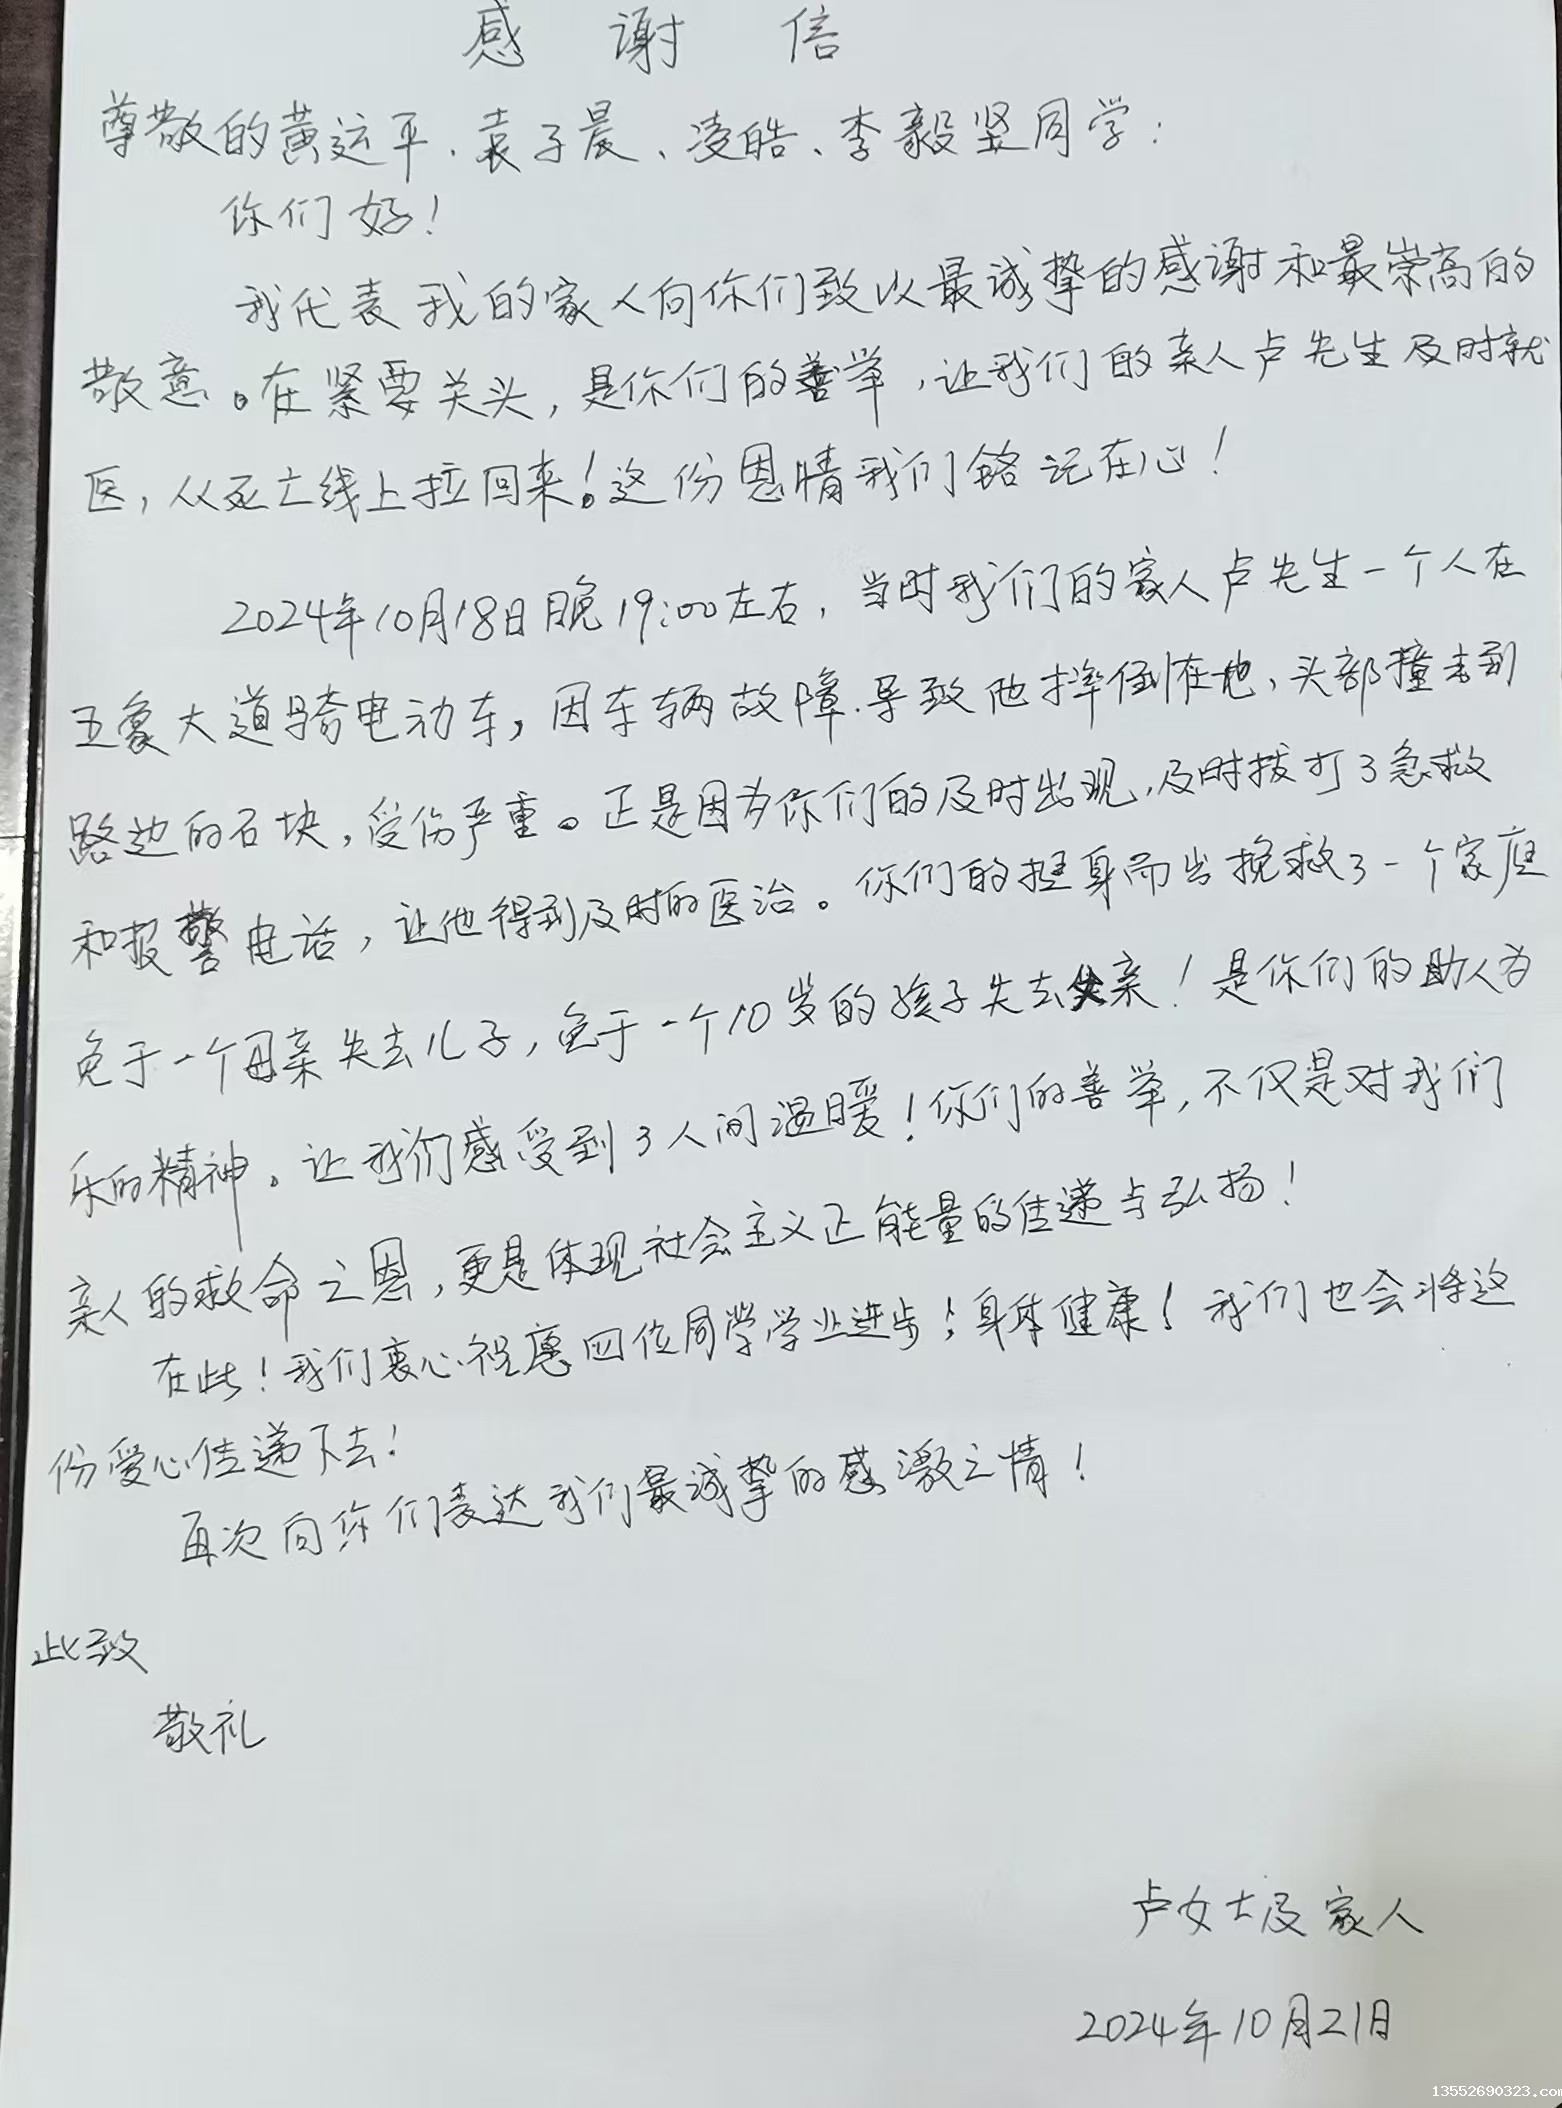 感谢信
尊敬的黄运平、袁子晨、凌皓、李毅坚同学:
你们好!
我代表我的家人向你们致以最诚挚的感谢和最崇高的
敬意。在紧要关头,是你们的善举,让我们的亲人卢先生及时就
医,从死亡线上拉回来!这份恩情我们铭记在心!
2024年10月18日晚19:00左右,当时我们的家人卢先生一个人在
五象大道骑电动车,因车辆故障.导致他摔倒在地,头部撞击到
路边的石块,受伤严重。正是因为你们的及时出现,及时拔打了急救
和报警电话,让他得到及时的医治。你们的挺身而出挽救了一个家庭
免于一个母亲失去儿子,免于一个10岁的孩子失去父亲!是你们的助人为
乐的精神。让我们感受到了人间温暖!你们的善举,不仅是对我们
亲人的救命之恩,更是体现社会主义正能量的传递与弘扬!
在此!我们衷心祝愿四位同学学业进步!身体健康!我们也会将这
份爱心传递下去!
再次向你们表达我们最诚挚的感激之情!
此致
敬礼
卢女士及家人
2024年10月21日
13552690323.com